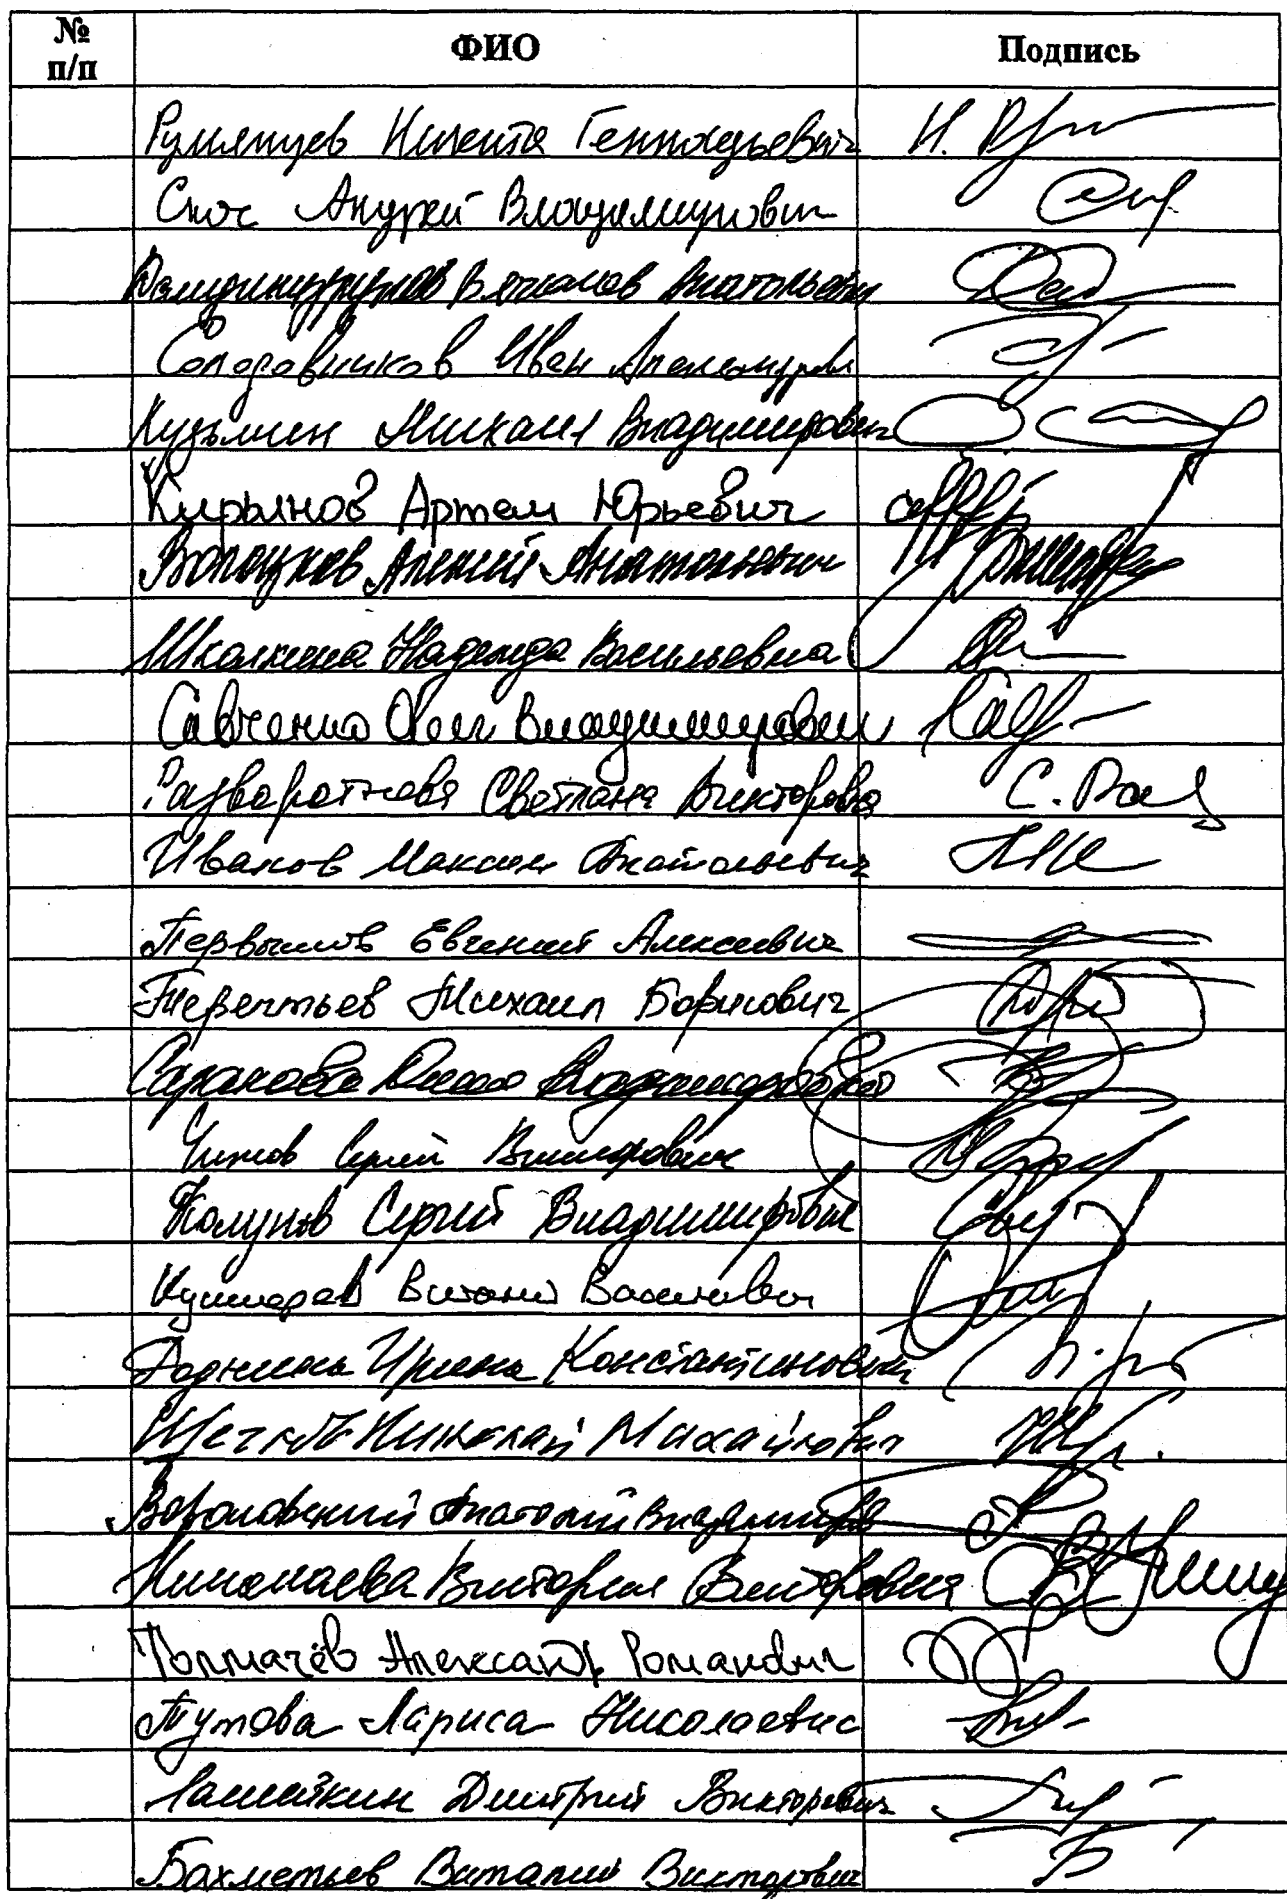 № п/п ФИО Подпись
Румянцев Никита Геннадьевич
Андрей Владимирович
Анатольевич
Солодовников Иван Александрович
Кузьмин Михаил Владимирович
Кирьянов Артем Юрьевич
Алексей Анатольевич
Школкина Надежда Васильевна
Савченко Олег Владимирович
Разворотнева Светлана Викторовна С. Раз
Иванов Максим Анатольевич
Первышов Евгений Алексеевич
Терентьев Михаил Борисович
Чижов Сергей Викторович
Колунов Сергей Владимирович
Виталий Васильевич
Роднина Ирина Константиновна
Николай Михайлович
Вороновский Анатолий Владимирович
Николаева Виктория Викторовна
Толмачёв Александр Романович
Тутова Лариса Николаевна
Ламейкин Дмитрий Викторович
Бахметьев Виталий Викторович